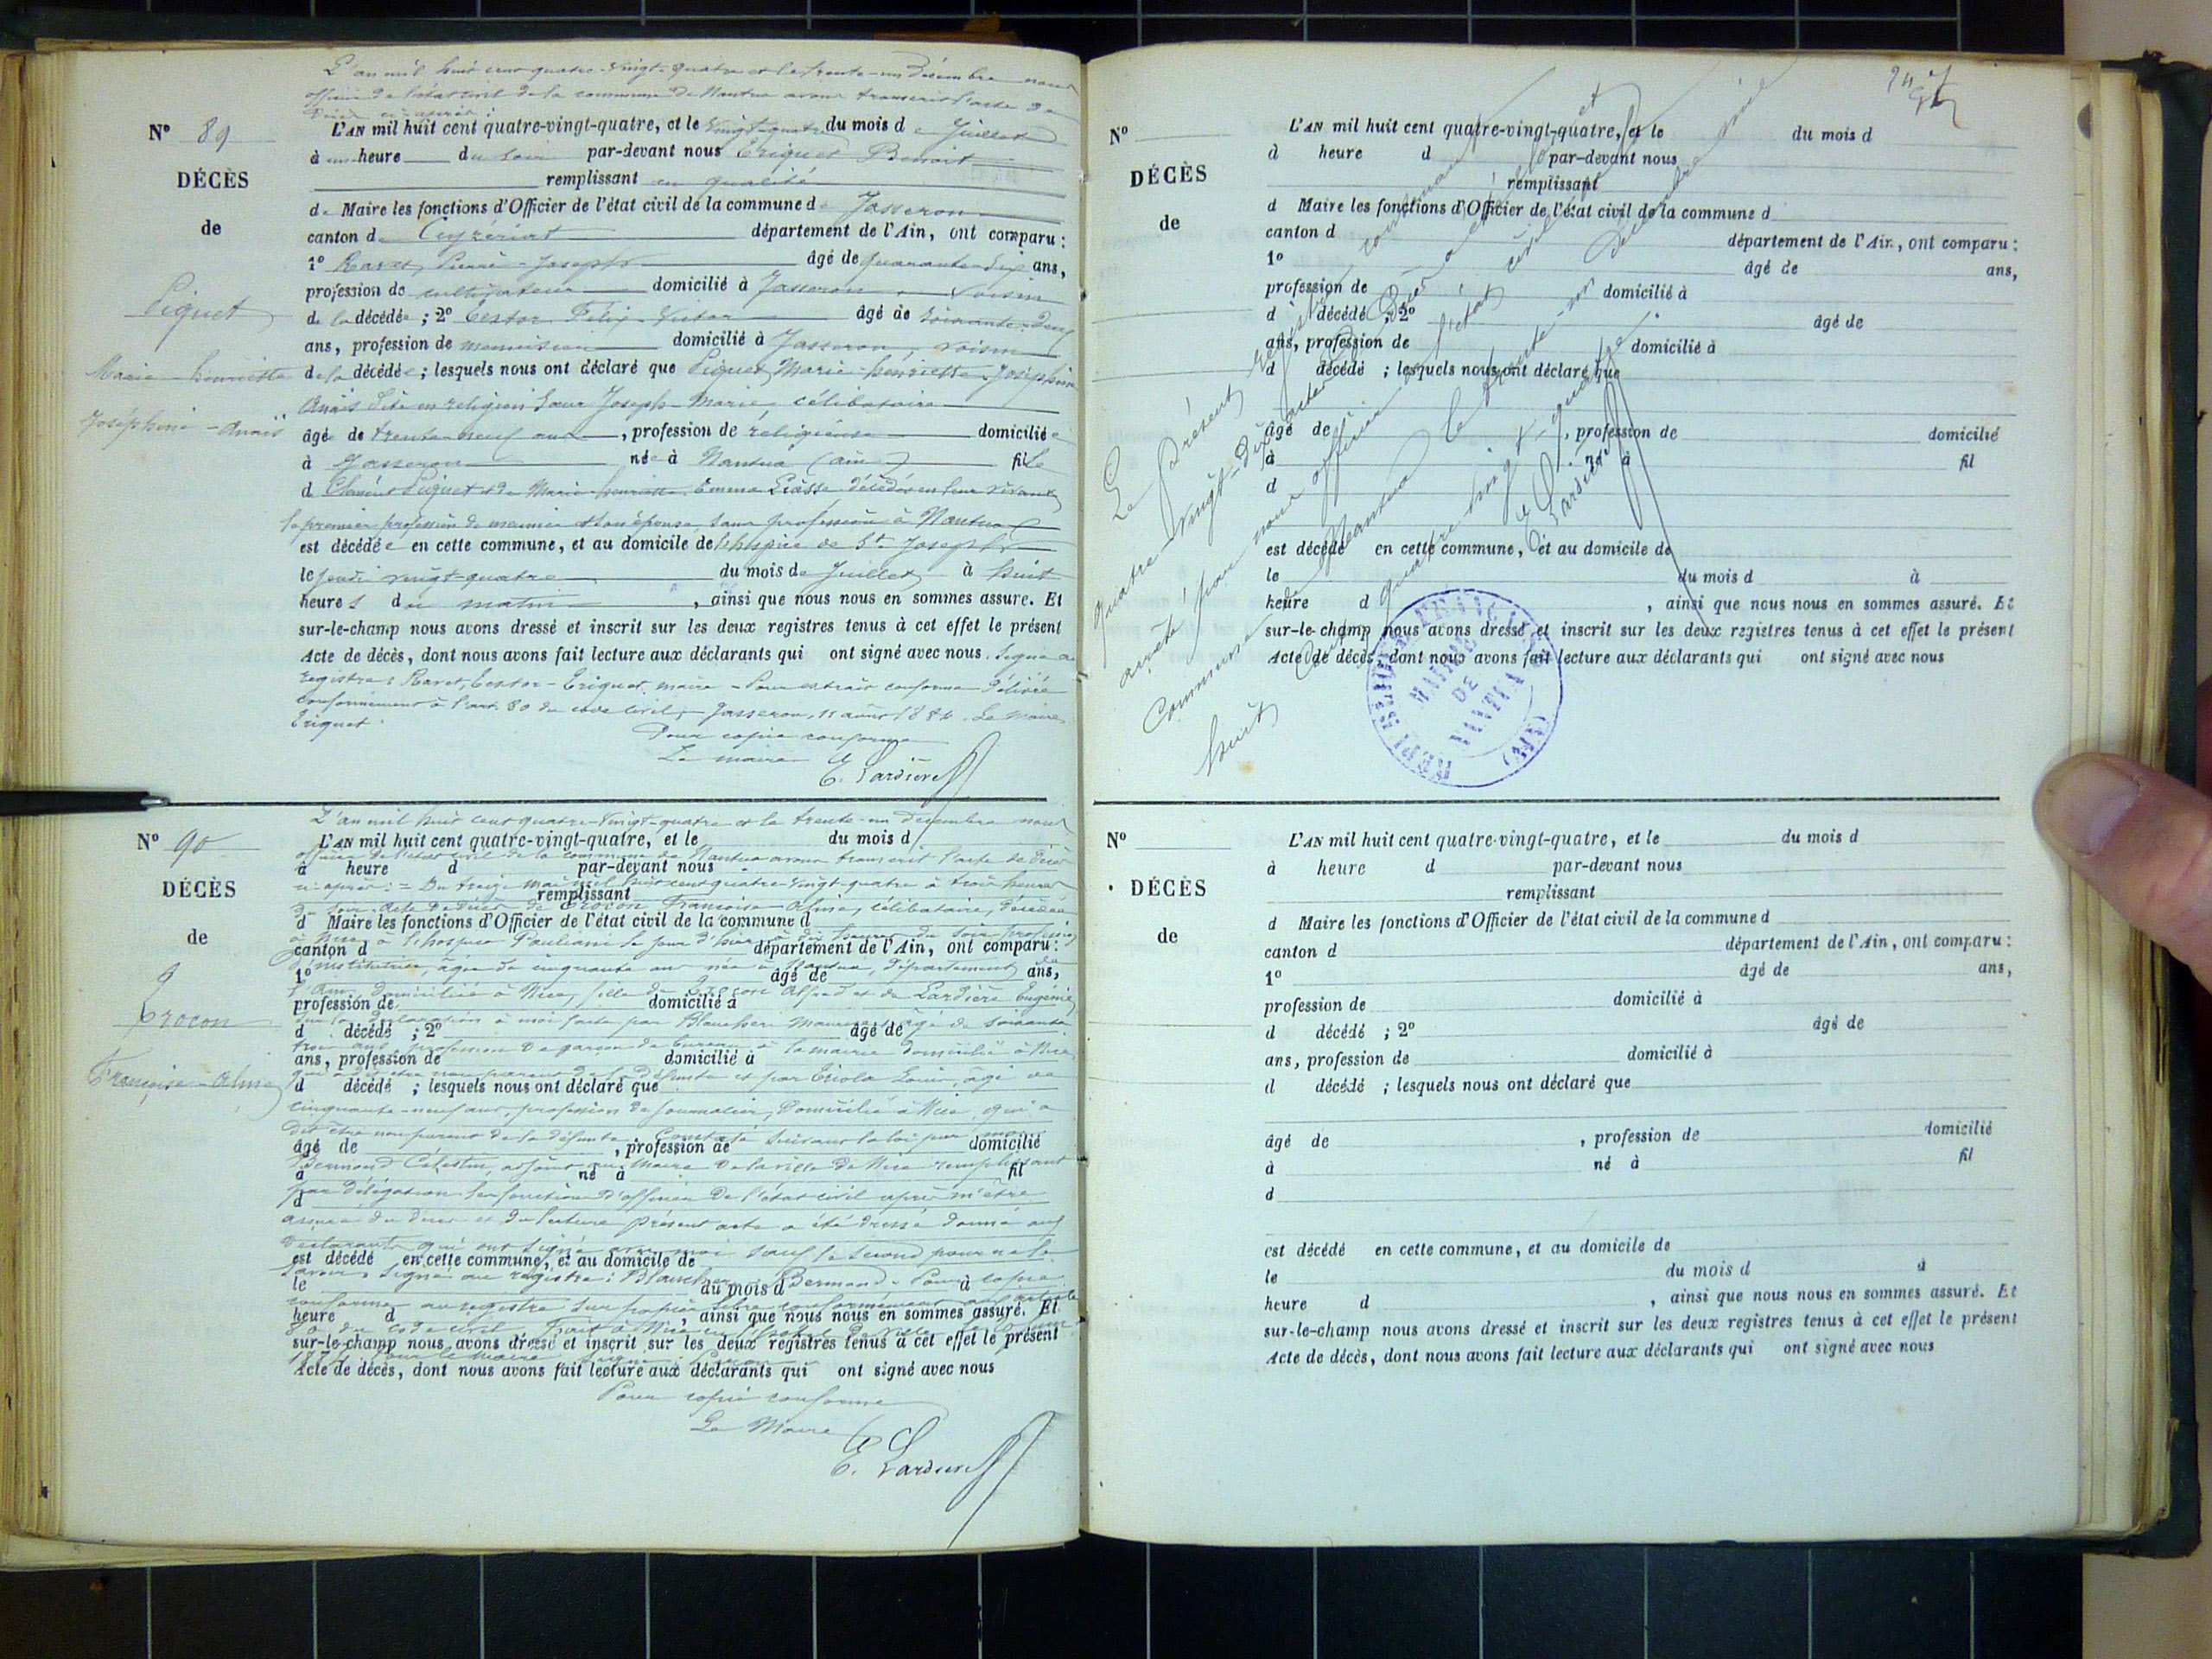 L'an mil huit cent quatre-vingt-quatre et le trente-un décembre nous
officier de l'état civil de la commune de Nantua avons transcrit l'acte de
décès ci-après :
N° 89
L'AN mil huit cent quatre-vingt-quatre, et le vingt-quatre du mois de Juillet
à une heure du soir par-devant nous Eriguet Benoit
DÉCÈS
remplissant en qualité
de Maire les fonctions d'Officier de l'état civil de la commune de Jasseron
de
canton de Ceyzériat département de l'Ain, ont comparu :
1° Ravet Pierre-Joseph âgé de quarante-six ans,
profession de cultivateur domicilié à Jasseron, voisin
Piquet
de la décédée ; 2° Cestor Félix-Victor âgé de soixante-deux
ans, profession de menuisier domicilié à Jasseron, voisin
Marie-henriette
de la décédée ; lesquels nous ont déclaré que Piquet Marie-henriette-Joséphine
Anaïs dite en religion Sœur Joseph-Marie, célibataire
Joséphine-Anaïs
âgée de trente-neuf ans, profession de religieuse domiciliée
à Jasseron née à Nantua (ain) fille
d Clément Piquet et de Marie-henriette Emma décédés en leur vivant
le premier profession de meunier et son épouse, sans profession à Nantua
est décédée en cette commune, et au domicile de l'hospice de St Joseph
le jeudi vingt-quatre du mois de Juillet à huit
heures du matin, ainsi que nous nous en sommes assuré. Et
sur-le-champ nous avons dressé et inscrit sur les deux registres tenus à cet effet le présent
Acte de décès, dont nous avons fait lecture aux déclarants qui ont signé avec nous. Signé au
registre : Ravet, Cestor - Eriguet, maire - Pour extrait conforme délivré
conformément à l'art. 80 du code civil, Jasseron, 11 août 1884. Le maire
Eriguet
Pour copie conforme
Le maire
E. Lardière
N° 90
L'an mil huit cent quatre-vingt-quatre et le trente-un décembre nous
L'AN mil huit cent quatre-vingt-quatre, et le du mois d
officier de l'état civil de la commune de Nantua avons transcrit l'acte de décès
à heure d par-devant nous
DÉCÈS
ci-après : = Du treize mai mil huit cent quatre-vingt-quatre à trois heures
remplissant
du soir. Acte de décès de Crocon Françoise-Alma, célibataire, décédée
d Maire les fonctions d'Officier de l'état civil de la commune d
de
à Nice, à l'hospice Pauliani le jour d'hier à dix heures du soir profession
canton d département de l'Ain, ont comparu :
d'institutrice, âgée de cinquante ans née à Nantua, département de
1° âgé de ans,
l'Ain, domiciliée à Nice, fille de Crocon Alfred et de Lardière Eugénie
profession de domicilié à
Crocon
sur la déclaration à moi faite par âgé de soixante
d décédé ; 2° âgé de
trois ans, profession de garçon de bureau à la mairie domicilié à Nice,
ans, profession de domicilié à
Françoise-Alma
qui a dit être non parent de la défunte et par Louis, âgé de
d décédé ; lesquels nous ont déclaré que
cinquante-neuf ans, profession de journalier, domicilié à Nice, qui a
dit être non parent de la défunte. Constaté suivant la loi par nous
âgé de , profession de domicilié
Bermond Célestin, adjoint au Maire de la ville de Nice remplissant
à né à fil
par délégation les fonctions d'officier de l'état civil après m'être
d
assuré du décès et de lecture présent acte a été dressé donné aux
déclarants qui ont signé avec moi sauf le second pour ne le
est décédé en cette commune, et au domicile de
savoir. Signé au registre : Bermond. Pour copie
le du mois d à
conforme au registre sur papier libre conformément aux article
heure d , ainsi que nous nous en sommes assuré. Et
80 du code civil.
sur-le-champ nous avons dressé et inscrit sur les deux registres tenus à cet effet le présent
Acte de décès, dont nous avons fait lecture aux déclarants qui ont signé avec nous
Pour copie conforme
Le Maire
E. Lardière
N°
L'AN mil huit cent quatre-vingt-quatre, et le du mois d
à heure d par-devant nous
DÉCÈS
remplissant
d Maire les fonctions d'Officier de l'état civil de la commune d
de
canton d département de l'Ain, ont comparu :
1° âgé de ans,
profession de domicilié à
d décédé ; 2° âgé de
ans, profession de domicilié à
d décédé ; lesquels nous ont déclaré que
âgé de , profession de domicilié
à né à fil
d
est décédé en cette commune, et au domicile de
le du mois d à
heure d , ainsi que nous nous en sommes assuré. Et
sur-le-champ nous avons dressé et inscrit sur les deux registres tenus à cet effet le présent
Acte de décès, dont nous avons fait lecture aux déclarants qui ont signé avec nous
Le présent registre contenant
quatre-vingt-dix actes de Décès a été clos et
arrêté par nous officier de l'état civil de la
Commune de Nantua le trente-un Décembre mil
huit cent quatre-vingt-quatre.
Le Maire
E. Lardière
RÉPUBLIQUE FRANÇAISE
MAIRIE
DE
NANTUA
(AIN)
N°
L'AN mil huit cent quatre-vingt-quatre, et le du mois d
à heure d par-devant nous
DÉCÈS
remplissant
d Maire les fonctions d'Officier de l'état civil de la commune d
de
canton d département de l'Ain, ont comparu :
1° âgé de ans,
profession de domicilié à
d décédé ; 2° âgé de
ans, profession de domicilié à
d décédé ; lesquels nous ont déclaré que
âgé de , profession de domicilié
à né à fil
d
est décédé en cette commune, et au domicile de
le du mois d à
heure d , ainsi que nous nous en sommes assuré. Et
sur-le-champ nous avons dressé et inscrit sur les deux registres tenus à cet effet le présent
Acte de décès, dont nous avons fait lecture aux déclarants qui ont signé avec nous